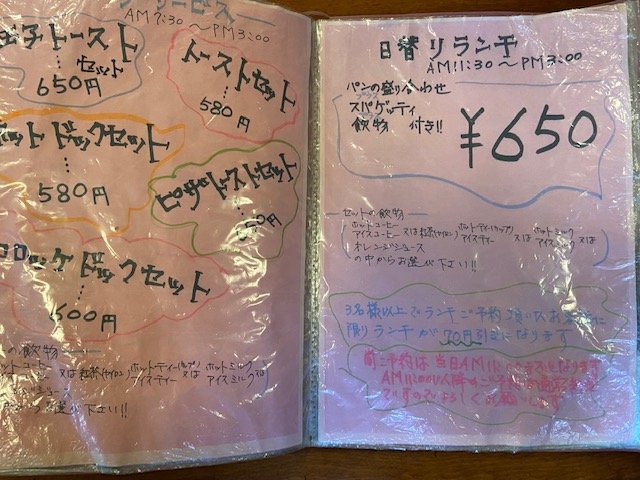 サービス
AM7:30～PM3:00
玉子トースト
セット
650円
トーストセット
580円
ホットドックセット
580円
ピザトーストセット
50円
コロッケドックセット
600円
の飲物
ホットコーヒー 又は 紅茶(セイロン) ホットティー(カップ) アイスティー 又は ホットミルク アイスミルク 又は
ジュース
下さい!!
日替りランチ
AM11:30～PM3:00
パンの盛り合わせ
スパゲッティ
飲物 付き!!
¥650
セットの飲物
ホットコーヒー アイスコーヒー 又は 紅茶(セイロン) ホットティー(カップ) アイスティー 又は ホットミルク アイスミルク 又は
オレンジジュース
の中からお選び下さい!!
3名様以上でランチご予約頂いたお客様に
限りランチが70円引きになります
前ご予約は当日AM11
AM11
よろしくお願いします